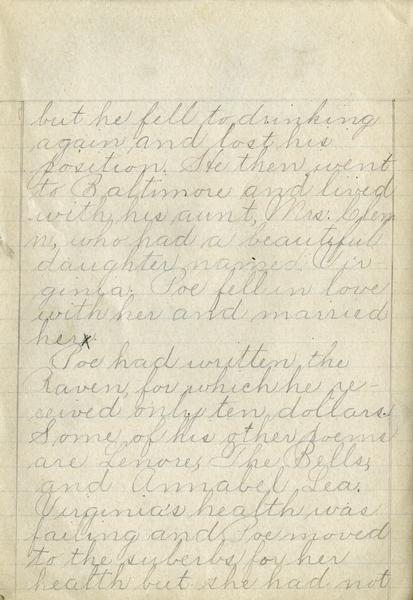 but he fell to drinking
again and lost his
position. He then went
to Baltimore and lived
with his aunt, Mrs. Clem
m, who had a beautiful
daughter named Vir
ginia. Poe fell in love
with her and married
her x
Poe had written the
Raven, for which he re-
ceived only ten dollars.
Some of his other poems
are Lenore, The Bells,
and Annabel Lea.
Virginia's health was
failing and Poe moved
to the suberbs for her
health but she had not